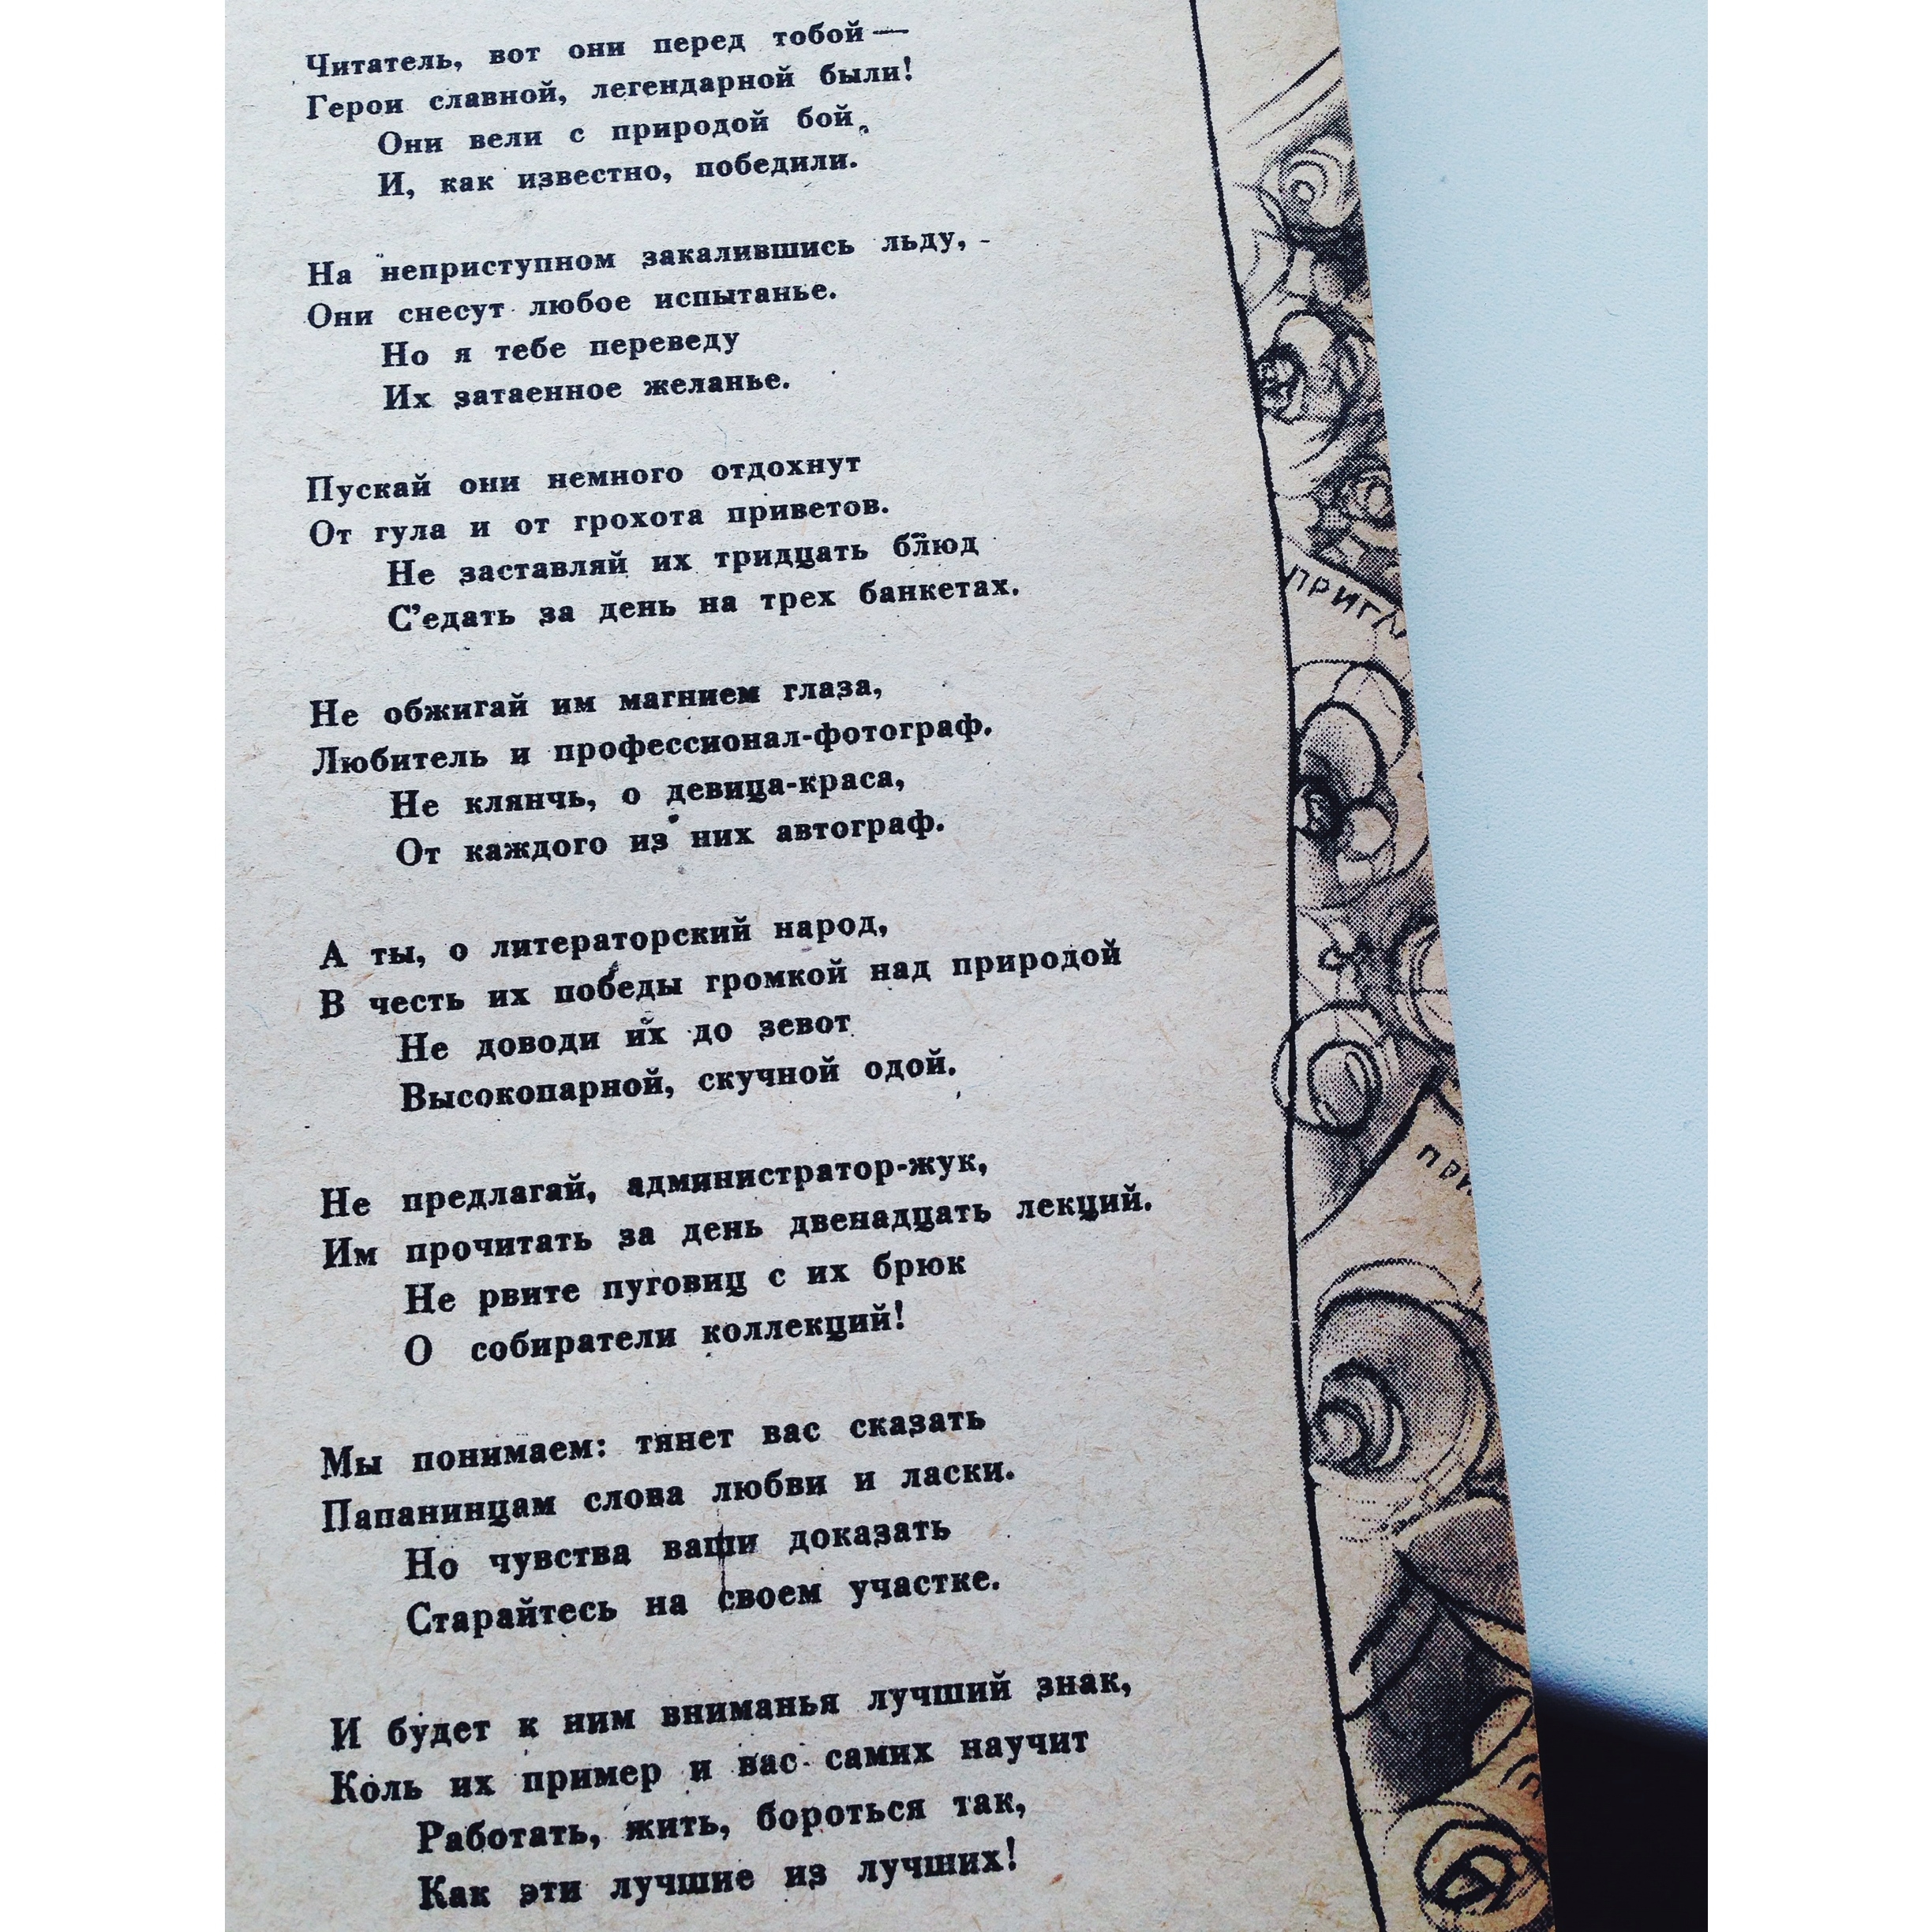 Читатель, вот они перед тобой —
Герои славной, легендарной были!
Они вели с природой бой,
И, как известно, победили.
На неприступном закалившись льду,
Они снесут любое испытанье.
Но я тебе переведу
Их затаенное желанье.
Пускай они немного отдохнут
От гула и от грохота приветов.
Не заставляй их тридцать блюд
С’едать за день на трех банкетах.
Не обжигай им магнием глаза,
Любитель и профессионал-фотограф.
Не клянчь, о девица-краса,
От каждого из них автограф.
А ты, о литераторский народ,
В честь их победы громкой над природой
Не доводи их до зевот
Высокопарной, скучной одой.
Не предлагай, администратор-жук,
Им прочитать за день двенадцать лекций.
Не рвите пуговиц с их брюк
О собиратели коллекций!
Мы понимаем: тянет вас сказать
Папанинцам слова любви и ласки.
Но чувства ваши доказать
Старайтесь на своем участке.
И будет к ним вниманья лучший знак,
Коль их пример и вас самих научит
Работать, жить, бороться так,
Как эти лучшие из лучших!
ПРИГЛ
ПРИ